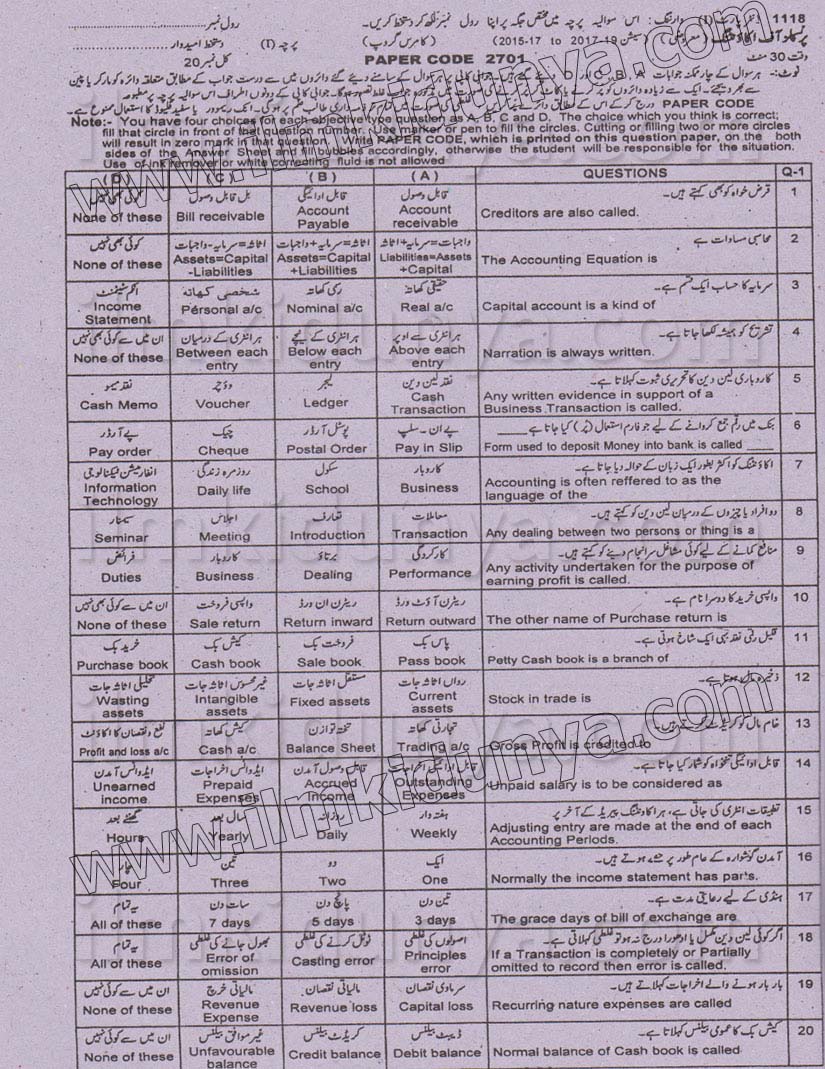 1118
PAPER CODE 2701
PAPER CODE
Note:- You have four choices for each objective type question as A, B, C and D. The choice which you think is correct;
fill that circle in front of that question number. Use marker or pen to fill the circles. Cutting or filling two or more circles
will result in zero mark in that question. Write PAPER CODE, which is printed on this question paper, on the both
sides of the Answer Sheet and fill bubbles accordingly, otherwise the student will be responsible for the situation.
Use of ink remover or white correcting fluid is not allowed
( D ) ( C ) ( B ) ( A ) QUESTIONS Q-1
کوئی بھی نہیں بل قابل وصول قابل ادائیگی قابل وصول قرض خواہ کو بھی کہتے ہیں۔ 1
None of these Bill receivable Account Payable Account receivable Creditors are also called.
کوئی بھی نہیں اثاثہ=سرمایہ-واجبات اثاثہ=سرمایہ+واجبات واجبات=سرمایہ+اثاثہ محاسبی مساوات ہے 2
None of these Assets=Capital -Liabilities Assets=Capital +Liabilities Liabilities=Assets +Capital The Accounting Equation is
انکم سٹیٹمنٹ شخصی کھاتہ رسمی کھاتہ حقیقی کھاتہ سرمایہ کا حساب ایک قسم ہے۔ 3
Income Statement Personal a/c Nominal a/c Real a/c Capital account is a kind of
ان میں سے کوئی بھی نہیں ہر انٹری کے درمیان ہر انٹری کے نیچے ہر انٹری سے اوپر تشریح کو ہمیشہ لکھا جاتا ہے۔ 4
None of these Between each entry Below each entry Above each entry Narration is always written.
نقد میمو ووچر لیجر نقد لین دین کاروباری لین دین کا تحریری ثبوت کہلاتا ہے۔ 5
Cash Memo Voucher Ledger Cash Transaction Any written evidence in support of a Business Transaction is called.
پے آرڈر چیک پوسٹل آرڈر پے ان۔ سلپ بنک میں رقم جمع کروانے کے لیے جو فارم استعمال (پُر) کیا جاتا ہے 6
Pay order Cheque Postal Order Pay in Slip Form used to deposit Money into bank is called ____
انفارمیشن ٹیکنالوجی روزمرہ زندگی سکول کاروبار اکاؤنٹنگ کو اکثر بطور ایک زبان کے حوالہ دیا جاتا ہے۔ 7
Information Technology Daily life School Business Accounting is often reffered to as the language of the
سیمینار اجلاس تعارف معاملات دو افراد یا چیزوں کے درمیان لین دین کو کہتے ہیں۔ 8
Seminar Meeting Introduction Transaction Any dealing between two persons or thing is a
فرائض کاروبار برتاؤ کارکردگی منافع کمانے کے لیے کوئی مشاغل سرانجام دینے کو کہتے ہیں۔ 9
Duties Business Dealing Performance Any activity undertaken for the purpose of earning profit is called.
ان میں سے کوئی بھی نہیں واپسی فروخت ریٹرن ان ورڈ ریٹرن آؤٹ ورڈ واپسی خرید کا دوسرا نام ہے۔ 10
None of these Sale return Return inward Return outward The other name of Purchase return is
خرید بک کیش بک فروخت بک پاس بک قلیل رقمی نقد بہی ایک شاخ ہوتی ہے۔ 11
Purchase book Cash book Sale book Pass book Petty Cash book is a branch of
تحلیلی اثاثہ جات غیر محسوس اثاثہ جات مستقل اثاثہ جات رواں اثاثہ جات ذخیرہ مال ہوتا ہے۔ 12
Wasting assets Intangible assets Fixed assets Current assets Stock in trade is
نفع و نقصان کا اکاؤنٹ کیش کھاتہ تختہ توازن تجارتی کھاتہ 13
Profit and loss a/c Cash a/c Balance Sheet Trading a/c Gross Profit is credited to
ایڈوانس آمدن ایڈوانس اخراجات قابل وصول آمدن قابل ادائیگی اخراجات قابل ادائیگی تنخواہ کو شمار کیا جاتا ہے۔ 14
Unearned income Prepaid Expenses Accrued Income Outstanding Expenses Unpaid salary is to be considered as
گھنٹے بعد سال بعد روزانہ ہفتہ وار تطبیقات انٹری کی جاتی ہے، ہر اکاؤنٹنگ پیریڈ کے آخر پر 15
Hours Yearly Daily Weekly Adjusting entry are made at the end of each Accounting Periods.
تین دو ایک آمدن گوشوارہ کے عام طور پر حصے ہوتے ہیں۔ 16
Four Three Two One Normally the income statement has par's.
یہ تمام سات دن پانچ دن تین دن ہنڈی کے لیے رعایتی مدت ہے۔ 17
All of these 7 days 5 days 3 days The grace days of bill of exchange are
یہ تمام بھول جانے کی غلطی ٹوٹل کرنے کی غلطی اصولوں کی غلطی اگر کوئی لین دین مکمل یا ادھورا درج نہ ہو تو غلطی کہلاتی ہے۔ 18
All of these Error of omission Casting error Principles error If a Transaction is completely or Partially omitted to record then error is called.
ان میں سے کوئی نہیں مالیاتی خرچ مالیاتی نقصان سرمادی نقصان بار بار ہونے والے اخراجات کہلاتے ہیں۔ 19
None of these Revenue Expense Revenue loss Capital loss Recurring nature expenses are called
ان میں سے کوئی نہیں غیر موافق بیلنس کریڈٹ بیلنس ڈیبٹ بیلنس کیش بک کا عمومی بیلنس کہلاتا ہے۔ 20
None of these Unfavourable balance Credit balance Debit balance Normal balance of Cash book is called
www.ilmkidunya.com
www.ilmkidunya.com